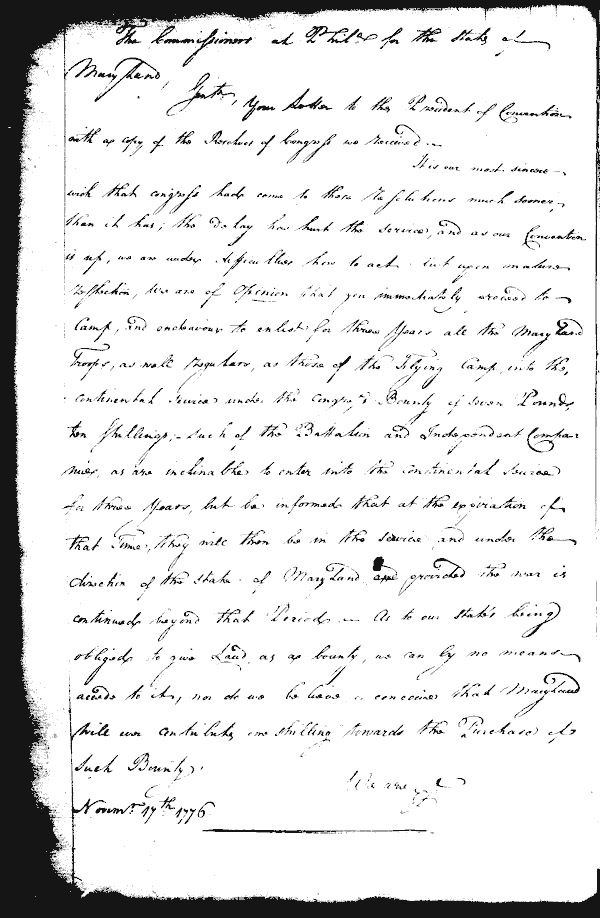 The Commissioners at Phila. for the State of
Maryland,
Gentn., Your Letter to the President of Convention
with a copy of the Resolves of Congress we received.
It is our most sincere
wish that congress had come to those resolutions much sooner,
than it has; the delay has hurt the service, and as our Convention
is up, we are under difficulties how to act. but upon mature
reflection, We are of Opinion that you immediately proceed to
Camp, and endeavour to enlist for three Years all the Maryland
Troops, as well regulars, as those of the Flying Camp, into the
continental service under the Bounty of seven Pounds
ten Shillings; such of the Battalion and Independent Compa
nies, as are inclinable to enter into the continental service
for three Years, but be informed that at the expiration of
that Time, they will then be in the service and under the
direction of the State of Maryland provided the war is
continued beyond that Period — As to our State's being
obliged to give Land as a bounty, we can by no means
accede to it, nor do we believe or conceive that Maryland
will ever contribute one shilling towards the Purchase of
such Bounty.
We are &c
Novemr. 17th 1776